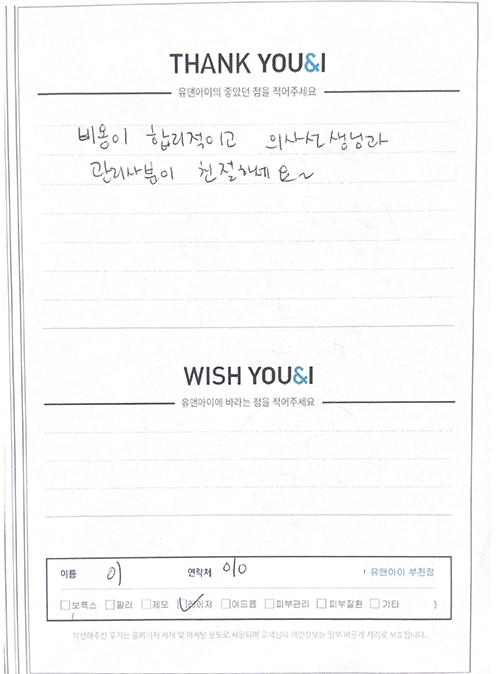 THANK YOU&I
유앤아이의 좋았던 점을 적어주세요
비용이 합리적이고 의사선생님과
관리사분이 친절하네요~
WISH YOU&I
유앤아이에 바라는 점을 적어주세요
이름 이 연락처 010 유앤아이 부천점
보톡스 필러 제모 레이저 여드름 피부관리 피부질환 기타 )
적어주신 후기는 홈페이지 게재 및 마케팅 용도로 사용되며 고객님의 개인정보는 일부 비공개 처리로 보호됩니다.